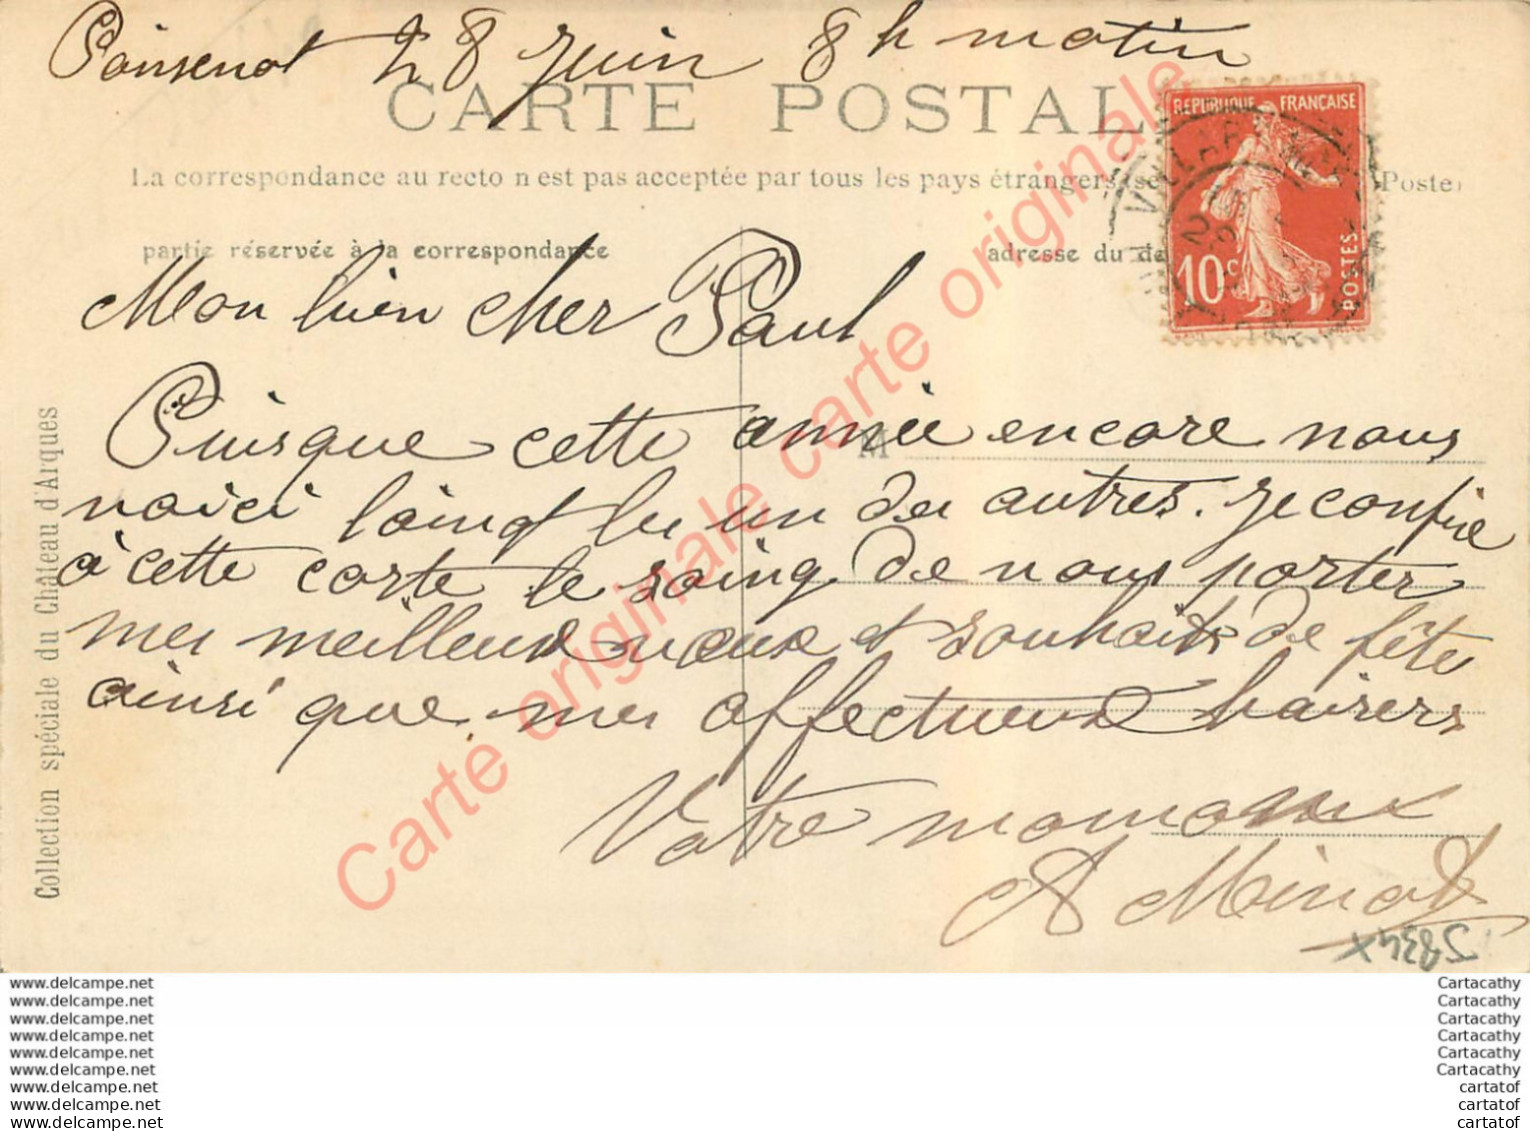 Poinsenot 28 Juin 8 h matin
CARTE POSTAL
La correspondance au recto n'est pas acceptée par tous les pays étrangers (se Poste)
partie réservée à la correspondance
adresse du de
RÉPUBLIQUE FRANÇAISE
10 c
POSTES
VILLARS
Mon bien cher Paul
M
Puisque cette année encore nous
voici loingt les un des autres. Je confie
à cette carte le soing de vous porter
mes meilleux vœux et souhaits de fête
ainsi que mes affectueux baisers
Votre maman
A Minot
5834x
Collection spéciale du Château d'Arques
Carte originale carte originale
www.delcampe.net
www.delcampe.net
www.delcampe.net
www.delcampe.net
www.delcampe.net
www.delcampe.net
www.delcampe.net
www.delcampe.net
www.delcampe.net
Cartacathy
Cartacathy
Cartacathy
Cartacathy
Cartacathy
Cartacathy
cartatof
cartatof
cartatof